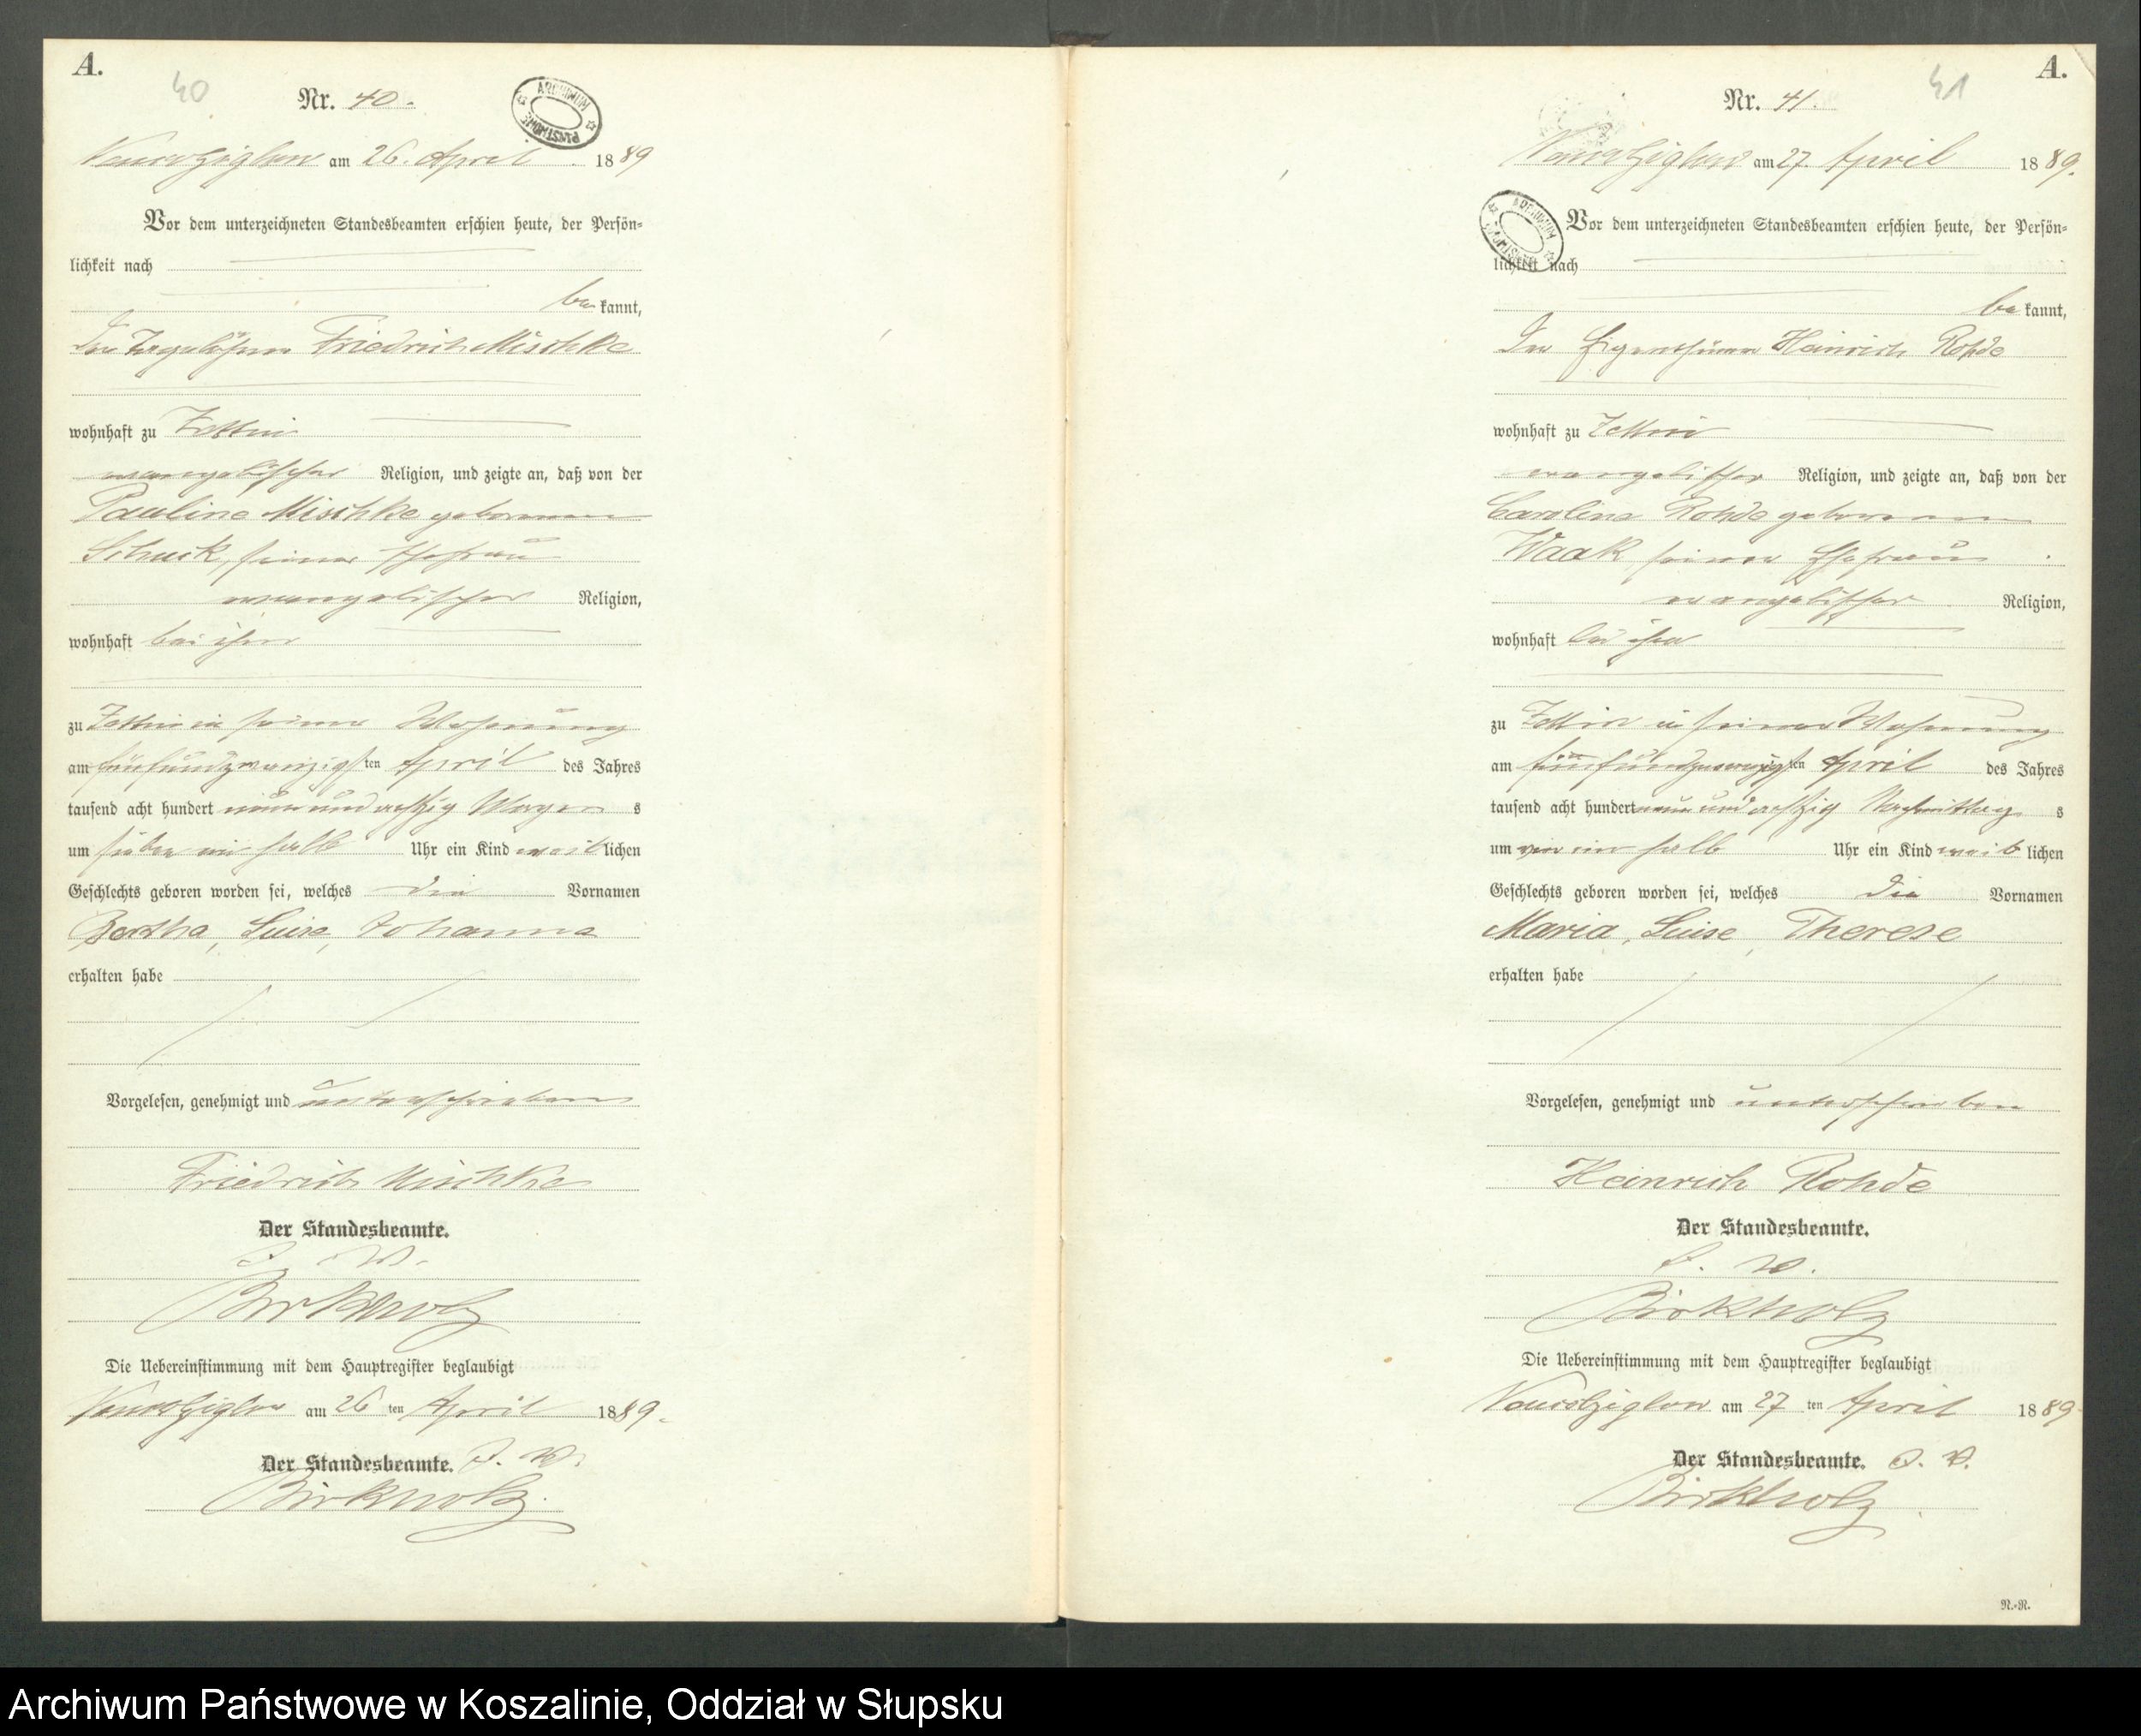 A.
40
Nr. 40.
ARCHIWUM PAŃSTWOWE
am 26. April 1889
Vor dem unterzeichneten Standesbeamten erschien heute, der Persön=
lichkeit nach
be kannt,
Der Friedrich Mischke
wohnhaft zu Zettin
evangelischer Religion, und zeigte an, daß von der
Pauline Mischke geborenen
Schuck, seiner Ehefrau
evangelischer Religion,
wohnhaft bei ihm
zu Zettin in seiner Wohnung
am fünfundzwanzigsten April des Jahres
tausend acht hundert neun und achtzig Morgens
um sieben ein halb Uhr ein Kind weiblichen
Geschlechts geboren worden sei, welches die Vornamen
Bertha, Luise, Johanna
erhalten habe
Vorgelesen, genehmigt und unterschrieben
Friedrich Mischke
Der Standesbeamte.
J. V.
Birkholz
Die Uebereinstimmung mit dem Hauptregister beglaubigt
am 26 ten April 1889.
Der Standesbeamte. J. V.
Birkholz
A.
41
Nr. 41.
am 27. April 1889.
ARCHIWUM PAŃSTWOWE
Vor dem unterzeichneten Standesbeamten erschien heute, der Persön=
lichkeit nach
be kannt,
Der Eigenthümer Heinrich Rohde
wohnhaft zu Zettin
evangelischer Religion, und zeigte an, daß von der
Caroline Rohde geborenen
Waak seiner Ehefrau
evangelischer Religion,
wohnhaft bei ihm
zu Zettin in seiner Wohnung
am fünfundzwanzigsten April des Jahres
tausend acht hundert neun und achtzig Nachmittags
um ein halb Uhr ein Kind weiblichen
Geschlechts geboren worden sei, welches die Vornamen
Maria, Luise, Therese
erhalten habe
Vorgelesen, genehmigt und unterschrieben
Heinrich Rohde
Der Standesbeamte.
J. V.
Birkholz
Die Uebereinstimmung mit dem Hauptregister beglaubigt
am 27 ten April 1889
Der Standesbeamte. J. V.
Birkholz
N.=N.
Archiwum Państwowe w Koszalinie, Oddział w Słupsku